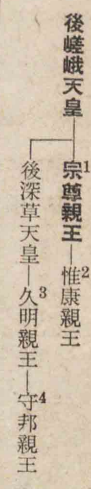 後嵯峨天皇
宗尊親王1―惟康親王2
後深草天皇―久明親王3―守邦親王4